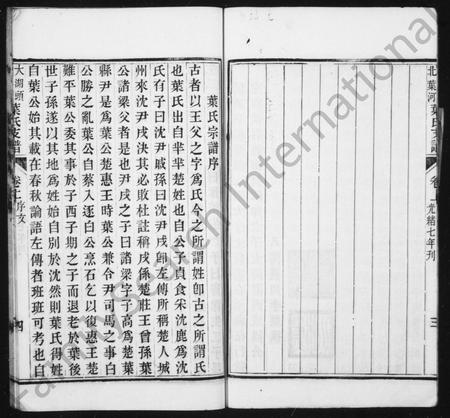 北葉河葉氏支譜
卷十
光緒七年刊
三
葉氏宗譜序
古者以王父之字為氏今之所謂姓卽古之所謂氏
也葉氏出自羋羋楚姓也自公子貞食采沈鹿為沈
氏有子曰沈尹戌孫曰沈尹戌卽左傳所稱楚人城
州來沈尹戌決其必敗杜註稱戌係楚莊王曾孫葉
公諸梁父者是也尹戌之子曰諸梁字子高為楚葉
縣尹是為葉公楚惠王時葉公兼令尹司馬之事白
公勝之亂葉公自蔡入逐白公烹石乞以復惠王楚
難平葉公委其事於子西子期之子而退老於葉後
世子孫遂以其地為姓始自別於沈然則葉氏得姓
自葉公始其載在春秋論語左傳者班班可考也自
大湖頭葉氏支譜
卷十
序文
四
FamilySearch International